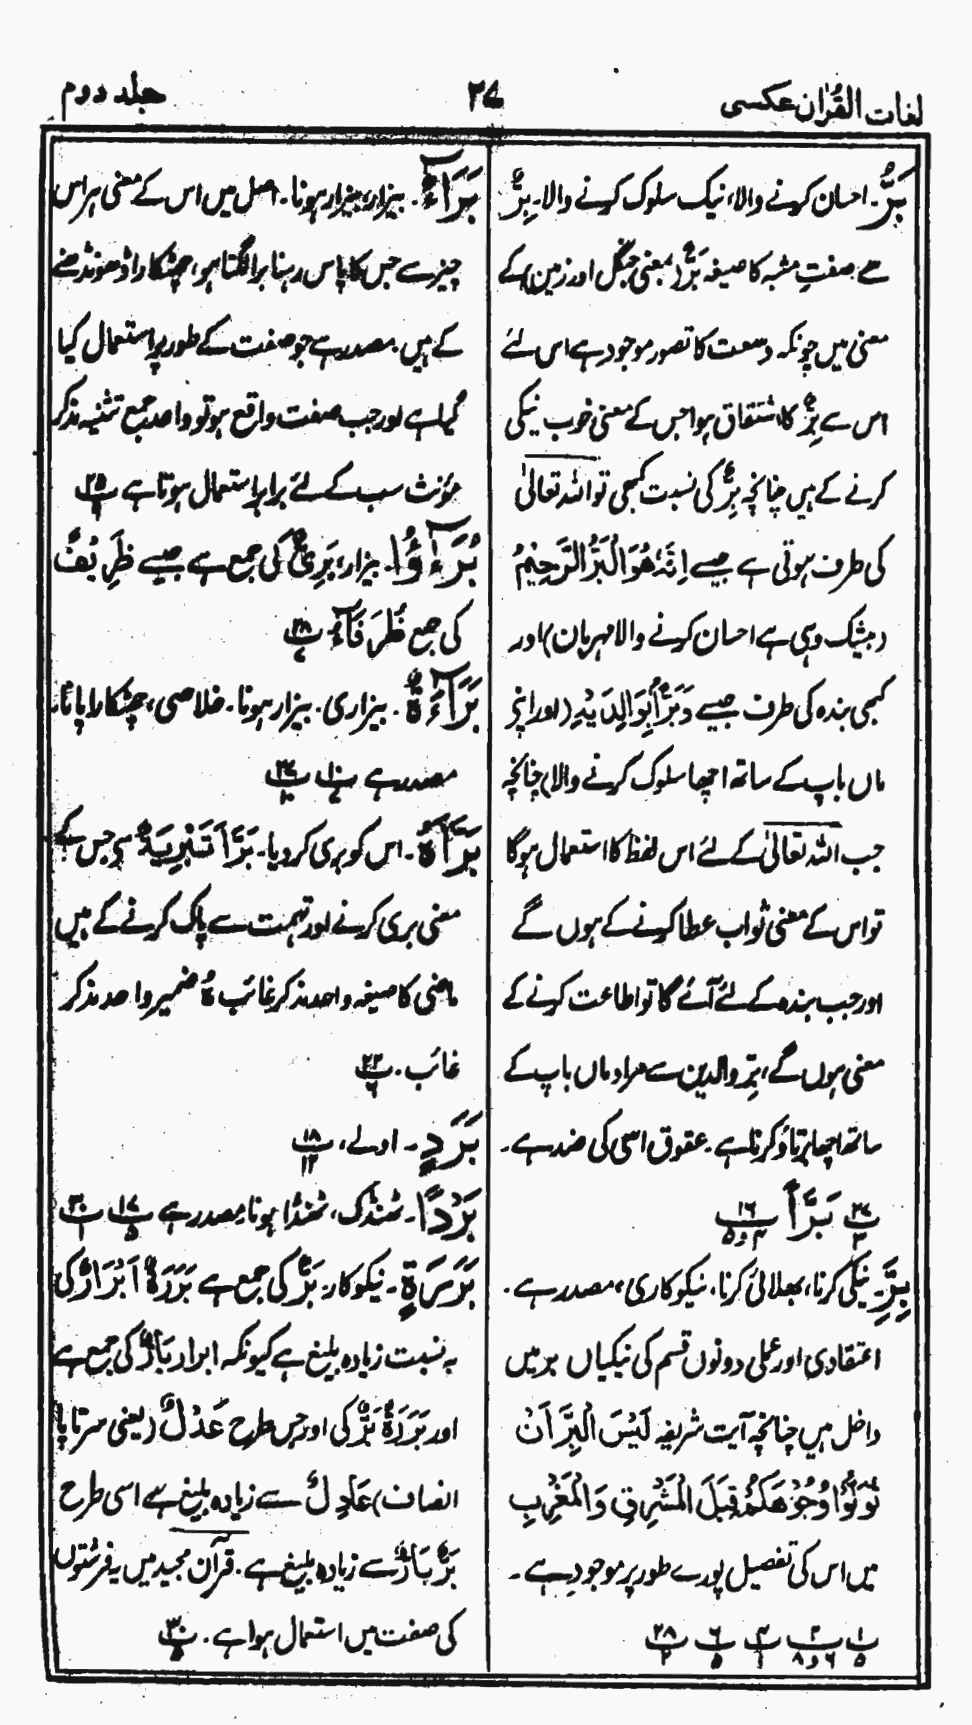 لغات القرآن عکسی
۲۷
جلد دوم
بَرٌّ۔ احسان کرنے والا، نیک سلوک کرنے والا۔ بِرٌّ
سے صفتِ مشبہ کا صیغہ بَرٌّ (بمعنی جنگل اور زمین) کے
معنی میں چونکہ وسعت کا تصور موجود ہے اس لئے
اس سے بِرٌّ کا اشتقاق ہوا جس کے معنی خوب نیکی
کرنے کے ہیں چنانچہ بِرٌّ کی نسبت کبھی تو اللہ تعالیٰ
کی طرف ہوتی ہے جیسے اِنَّهٗ هُوَ الْبَرُّ الرَّحِیْمُ
(بیشک وہی ہے احسان کرنے والا مہربان) اور
کبھی بندہ کی طرف جیسے وَبَرًّا بِوَالِدَیْهِ (اور اپنے
ماں باپ کے ساتھ اچھا سلوک کرنے والا) چنانچہ
جب اللہ تعالیٰ کے لئے اس لفظ کا استعمال ہوگا
تو اس کے معنی ثواب عطا کرنے کے ہوں گے
اور جب بندہ کے لئے آئے گا تو اطاعت کرنے کے
معنی ہوں گے، برّ والدین سے مراد ماں باپ کے
ساتھ اچھا برتاؤ کرنا ہے۔ عقوق اسی کی ضد ہے۔
۲۷/۳ بَرًّا ۱۶/۴ و ۵
بِرٌّ۔ نیکی کرنا، بھلائی کرنا، نیکوکاری، مصدر ہے۔
اعتقادی اور عملی دونوں قسم کی نیکیاں بر میں
داخل ہیں چنانچہ آیت شریفہ لَیْسَ الْبِرَّ اَنْ
تُوَلُّوْا وُجُوْهَكُمْ قِبَلَ الْمَشْرِقِ وَالْمَغْرِبِ
میں اس کی تفصیل پورے طور پر موجود ہے۔
۱/۵ ۲/۶ و ۸ ۴/۱ ۶/۵ ۲۸/۲
بَرَآءٌ۔ بیزار، بیزار ہونا۔ اصل میں اس کے معنی ہر اس
چیز سے جس کا پاس رہنا برا لگتا ہو، چھٹکارا ڈھونڈھنے
کے ہیں۔ مصدر ہے جو صفت کے طور پر استعمال کیا
گیا ہے اور جب صفت واقع ہو تو واحد جمع تثنیہ مذکر
مؤنث سب کے لئے برابر استعمال ہوتا ہے ۲۵/۹
بُرَءٰٓؤُا۔ بیزار، بَرِیْءٌ کی جمع ہے جیسے ظَرِیْفٌ
کی جمع ظُرَفَآءُ ۲۸/۷
بَرَآءَةٌ۔ بیزاری۔ بیزار ہونا۔ خلاصی، چھٹکارا پانا،
مصدر ہے ۱۰/۷ ۲۷/۱۰
بَرَّاَهٗ۔ اس کو بری کر دیا۔ بَرَّاَ تَبْرِیَةٌ سے جس کے
معنی بری کرنے اور تہمت سے پاک کرنے کے ہیں
ماضی کا صیغہ واحد مذکر غائب هٗ ضمیر واحد مذکر
غائب۔ ۲۲/۶
بَرَدٍ۔ اولے، ۱۸/۱۲
بَرْدًا۔ ٹھنڈک، ٹھنڈا ہونا مصدر ہے ۱۷/۵ ۳۰/۱
بَرَرَةٍ۔ نیکوکار۔ بَرٌّ کی جمع ہے بَرَرَةٌ اَبْرَارٌ کی
بہ نسبت زیادہ بلیغ ہے کیونکہ ابرار بَارٌّ کی جمع ہے
اور بَرَرَةٌ بَرٌّ کی اور جس طرح عَدْلٌ (یعنی سرتاپا
انصاف) عَادِلٌ سے زیادہ بلیغ ہے اسی طرح
بَرٌّ بَارٌّ سے زیادہ بلیغ ہے۔ قرآن مجید میں یہ فرشتوں
کی صفت میں استعمال ہوا ہے۔ ۳۰/۵